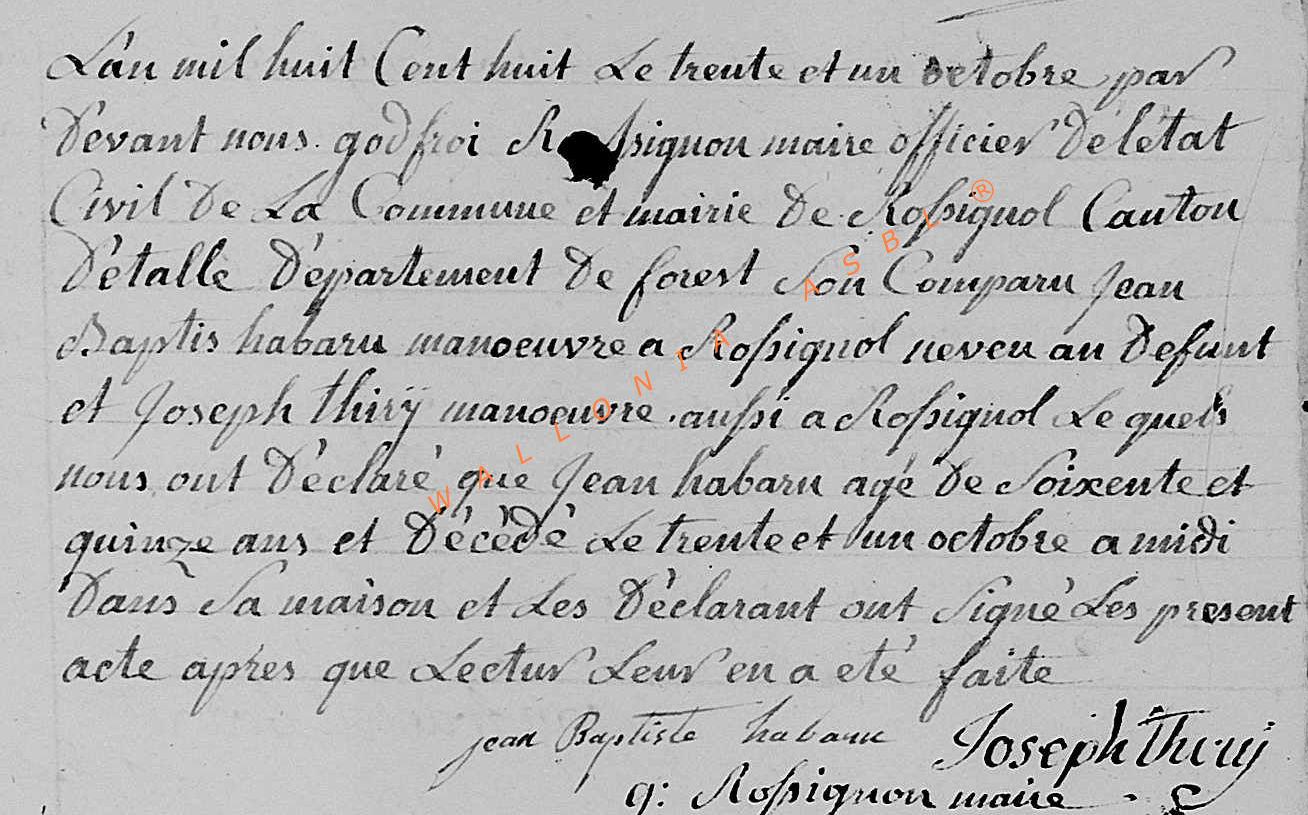 L'an mil huit Cent huit Le trente et un octobre par
Devant nous godfroi Rossignon maire officier De l'état
Civil De La Commune et mairie De Rossignol Canton
D'etalle Département De forest Son Comparu Jean
Baptis habaru manoeuvre a Rossignol neveu au Defunt
et Joseph thirÿ manoeuvre aussi a Rossignol Le quels
nous ont Déclaré que Jean habaru agé De Soixente et
quinze ans et Décédé Le trente et un octobre a midi
Dans Sa maison et Les Déclarant ont Signé Les present
acte apres que Lectur Leur en a eté faite
jean Baptiste habaru Joseph thiry
g: Rossignon maire
WALLONIA ASBL ®